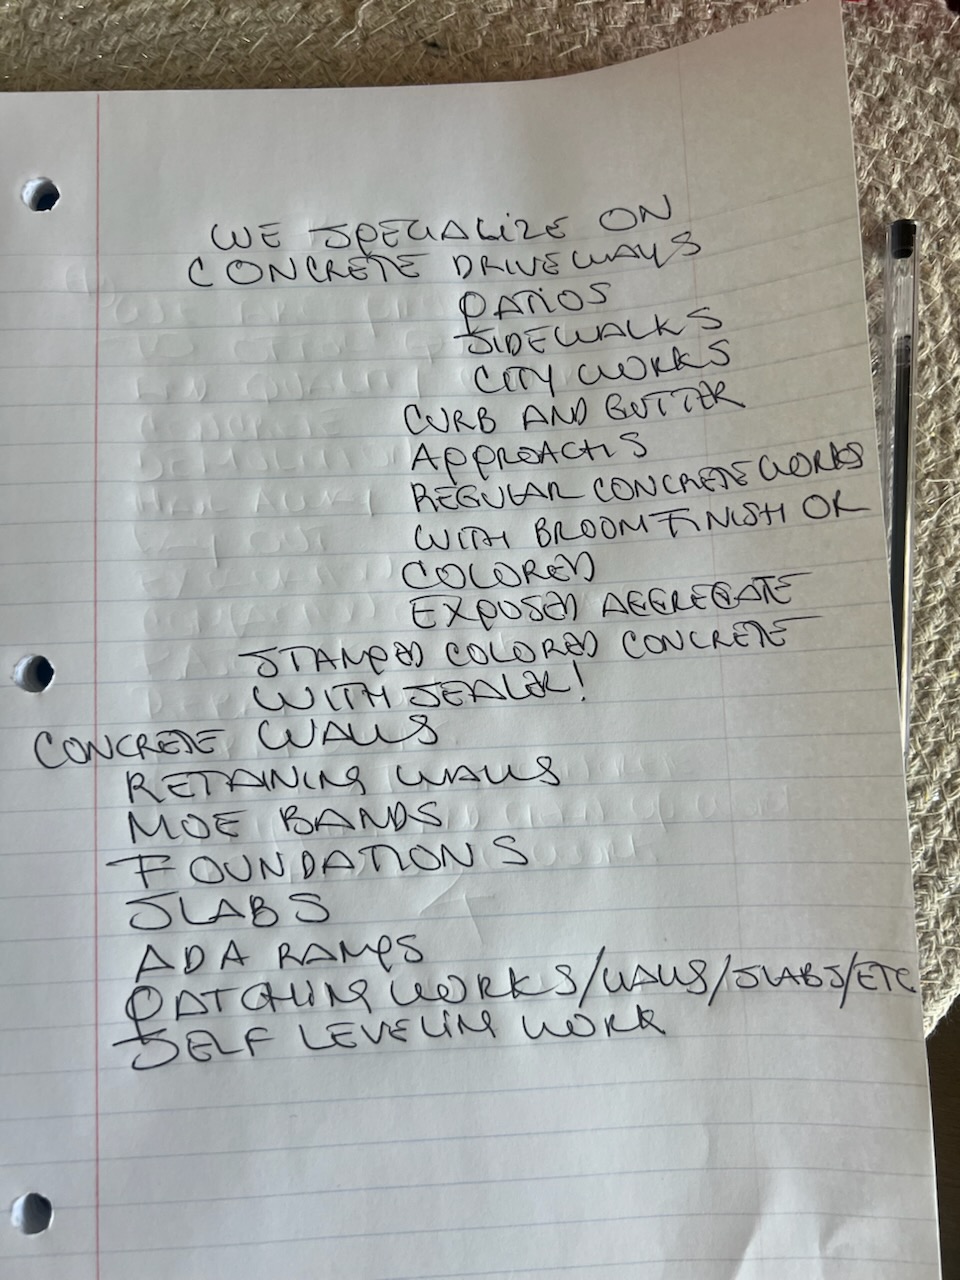 WE SPECIALIZE ON
CONCRETE DRIVEWAYS
PATIOS
SIDEWALKS
CITY WORKS
CURB AND GUTTER
APPROACHS
REGULAR CONCRETE WORKS
WITH BROOM FINISH OR
COLORED
EXPOSED AGGREGATE
STAMPED COLORED CONCRETE
WITH SEALER!
CONCRETE WALLS
RETAINING WALLS
MOE BANDS
FOUNDATIONS
SLABS
ADA RAMPS
PATCHING WORKS/WALLS/SLABS/ETC
SELF LEVELING WORK